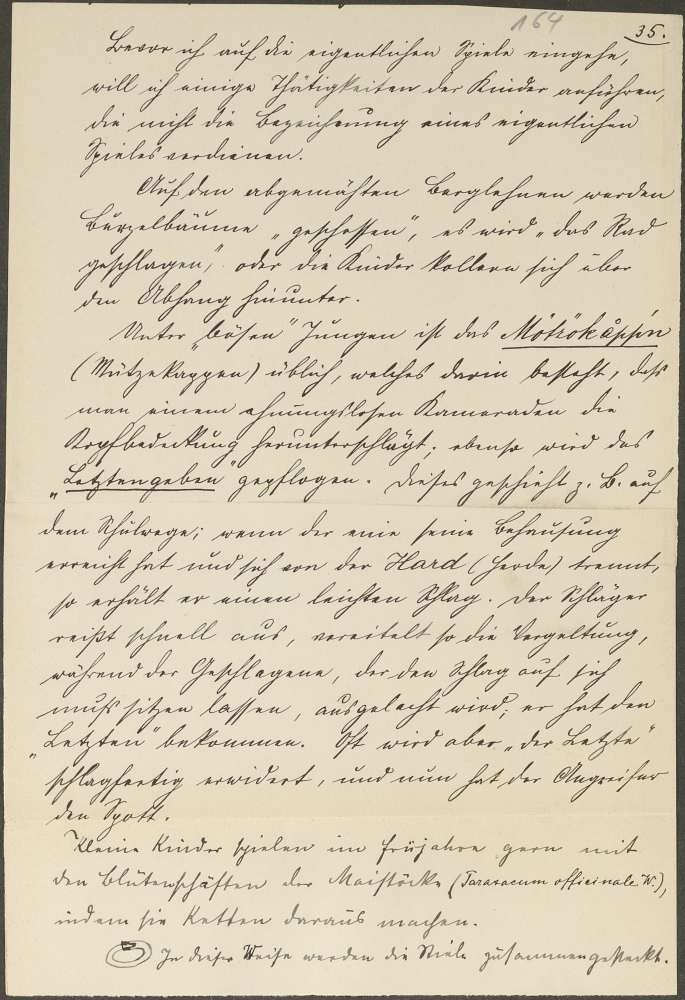 164
35.
Bevor ich auf die eigentlichen Spiele eingehe,
will ich einige Thätigkeiten der Kinder anführen,
die nicht die Bezeichnung eines eigentlichen
Spieles verdienen.
Auf den abgemähten Berglehnen werden
Burzelbäume „geschossen", es wird „das Rad
geschlagen," oder die Kinder kollern sich über
den Abhang hinunter.
Unter „bösen" Jungen ist das
(Mützekappen) üblich, welches darin besteht, dass
man einem ahnungslosen Kameraden die
Kopfbedeckung herunterschlägt; ebenso wird das
„Letztengeben" gepflogen. Dieses geschieht z. B. auf
dem Schulwege; wenn der eine seine Behausung
erreicht hat und sich von der Hard (Herde) trennt,
so erhält er einen leichten Schlag. Der Schläger
reißt schnell aus, vereitelt so die Vergeltung,
während der Geschlagene, der den Schlag auf sich
muss sitzen lassen, ausgelacht wird; er hat den
„Letzten" bekommen. Oft wird aber „der Letzte"
schlagfertig erwidert, und nun hat der Angreifer
den Spott.
Kleine Kinder spielen im Frühjahre gern mit
den Blütenschäften der Maistöcke (Taraxacum officinale W.),
indem sie Ketten daraus machen.
In dieser Weise werden die Stiele zusammengesteckt.